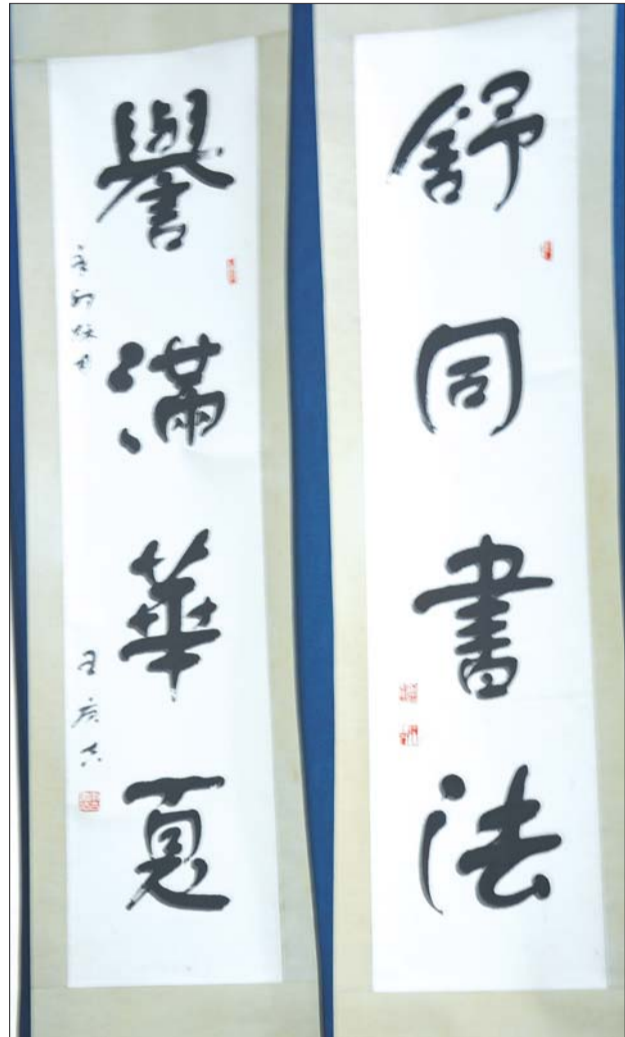 舒同書法
譽滿華夏
辛卯